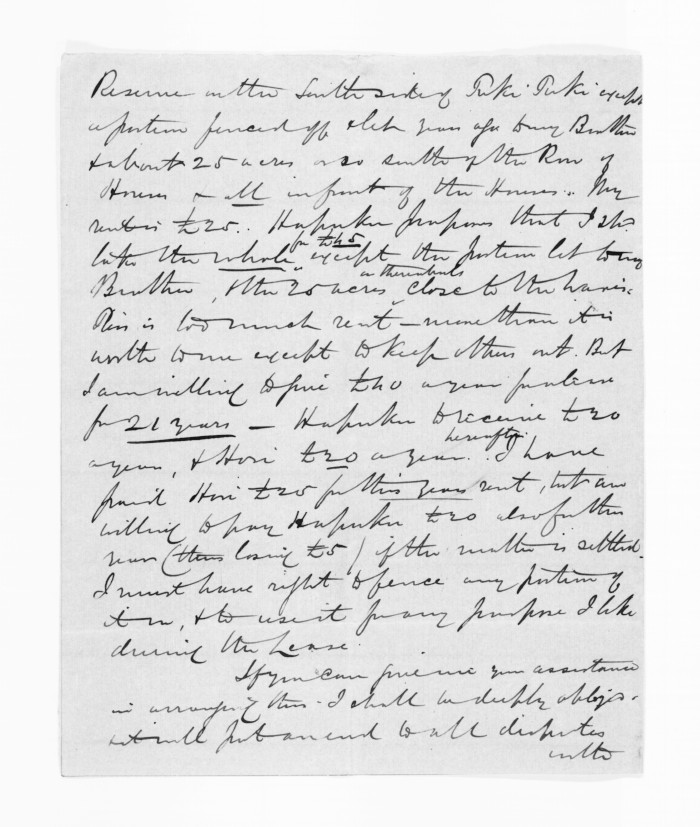 Reserve on the South side of Tuki Tuki except
a portion fenced off & let years ago to my Brother
& about 25 acres or so south of the Row of
Houses & all in front of the Houses. My
rent is £25. Hapuku proposes that I shd.
take the whole for £45 except the portion let to my
Brother, & the 20 acres on therentals close to the
This is too much rent — more than it is
worth to me except to keep others out. But
I am willing to give £40 a year for lease
for 21 years — Hapuku to receive £20
a year, & Hori £20 a year hereafter. I have
paid Hori £25 for this years rent, but am
willing to pay Hapuku £20 also for this
year (thus losing £5) if the matter is settled.
I must have right to fence any portion of
it in, & to use it for any purpose I like
during the Lease.
If you can give me your assistance
in arranging this I shall be deeply obliged.
& it will put an end to all disputes
with